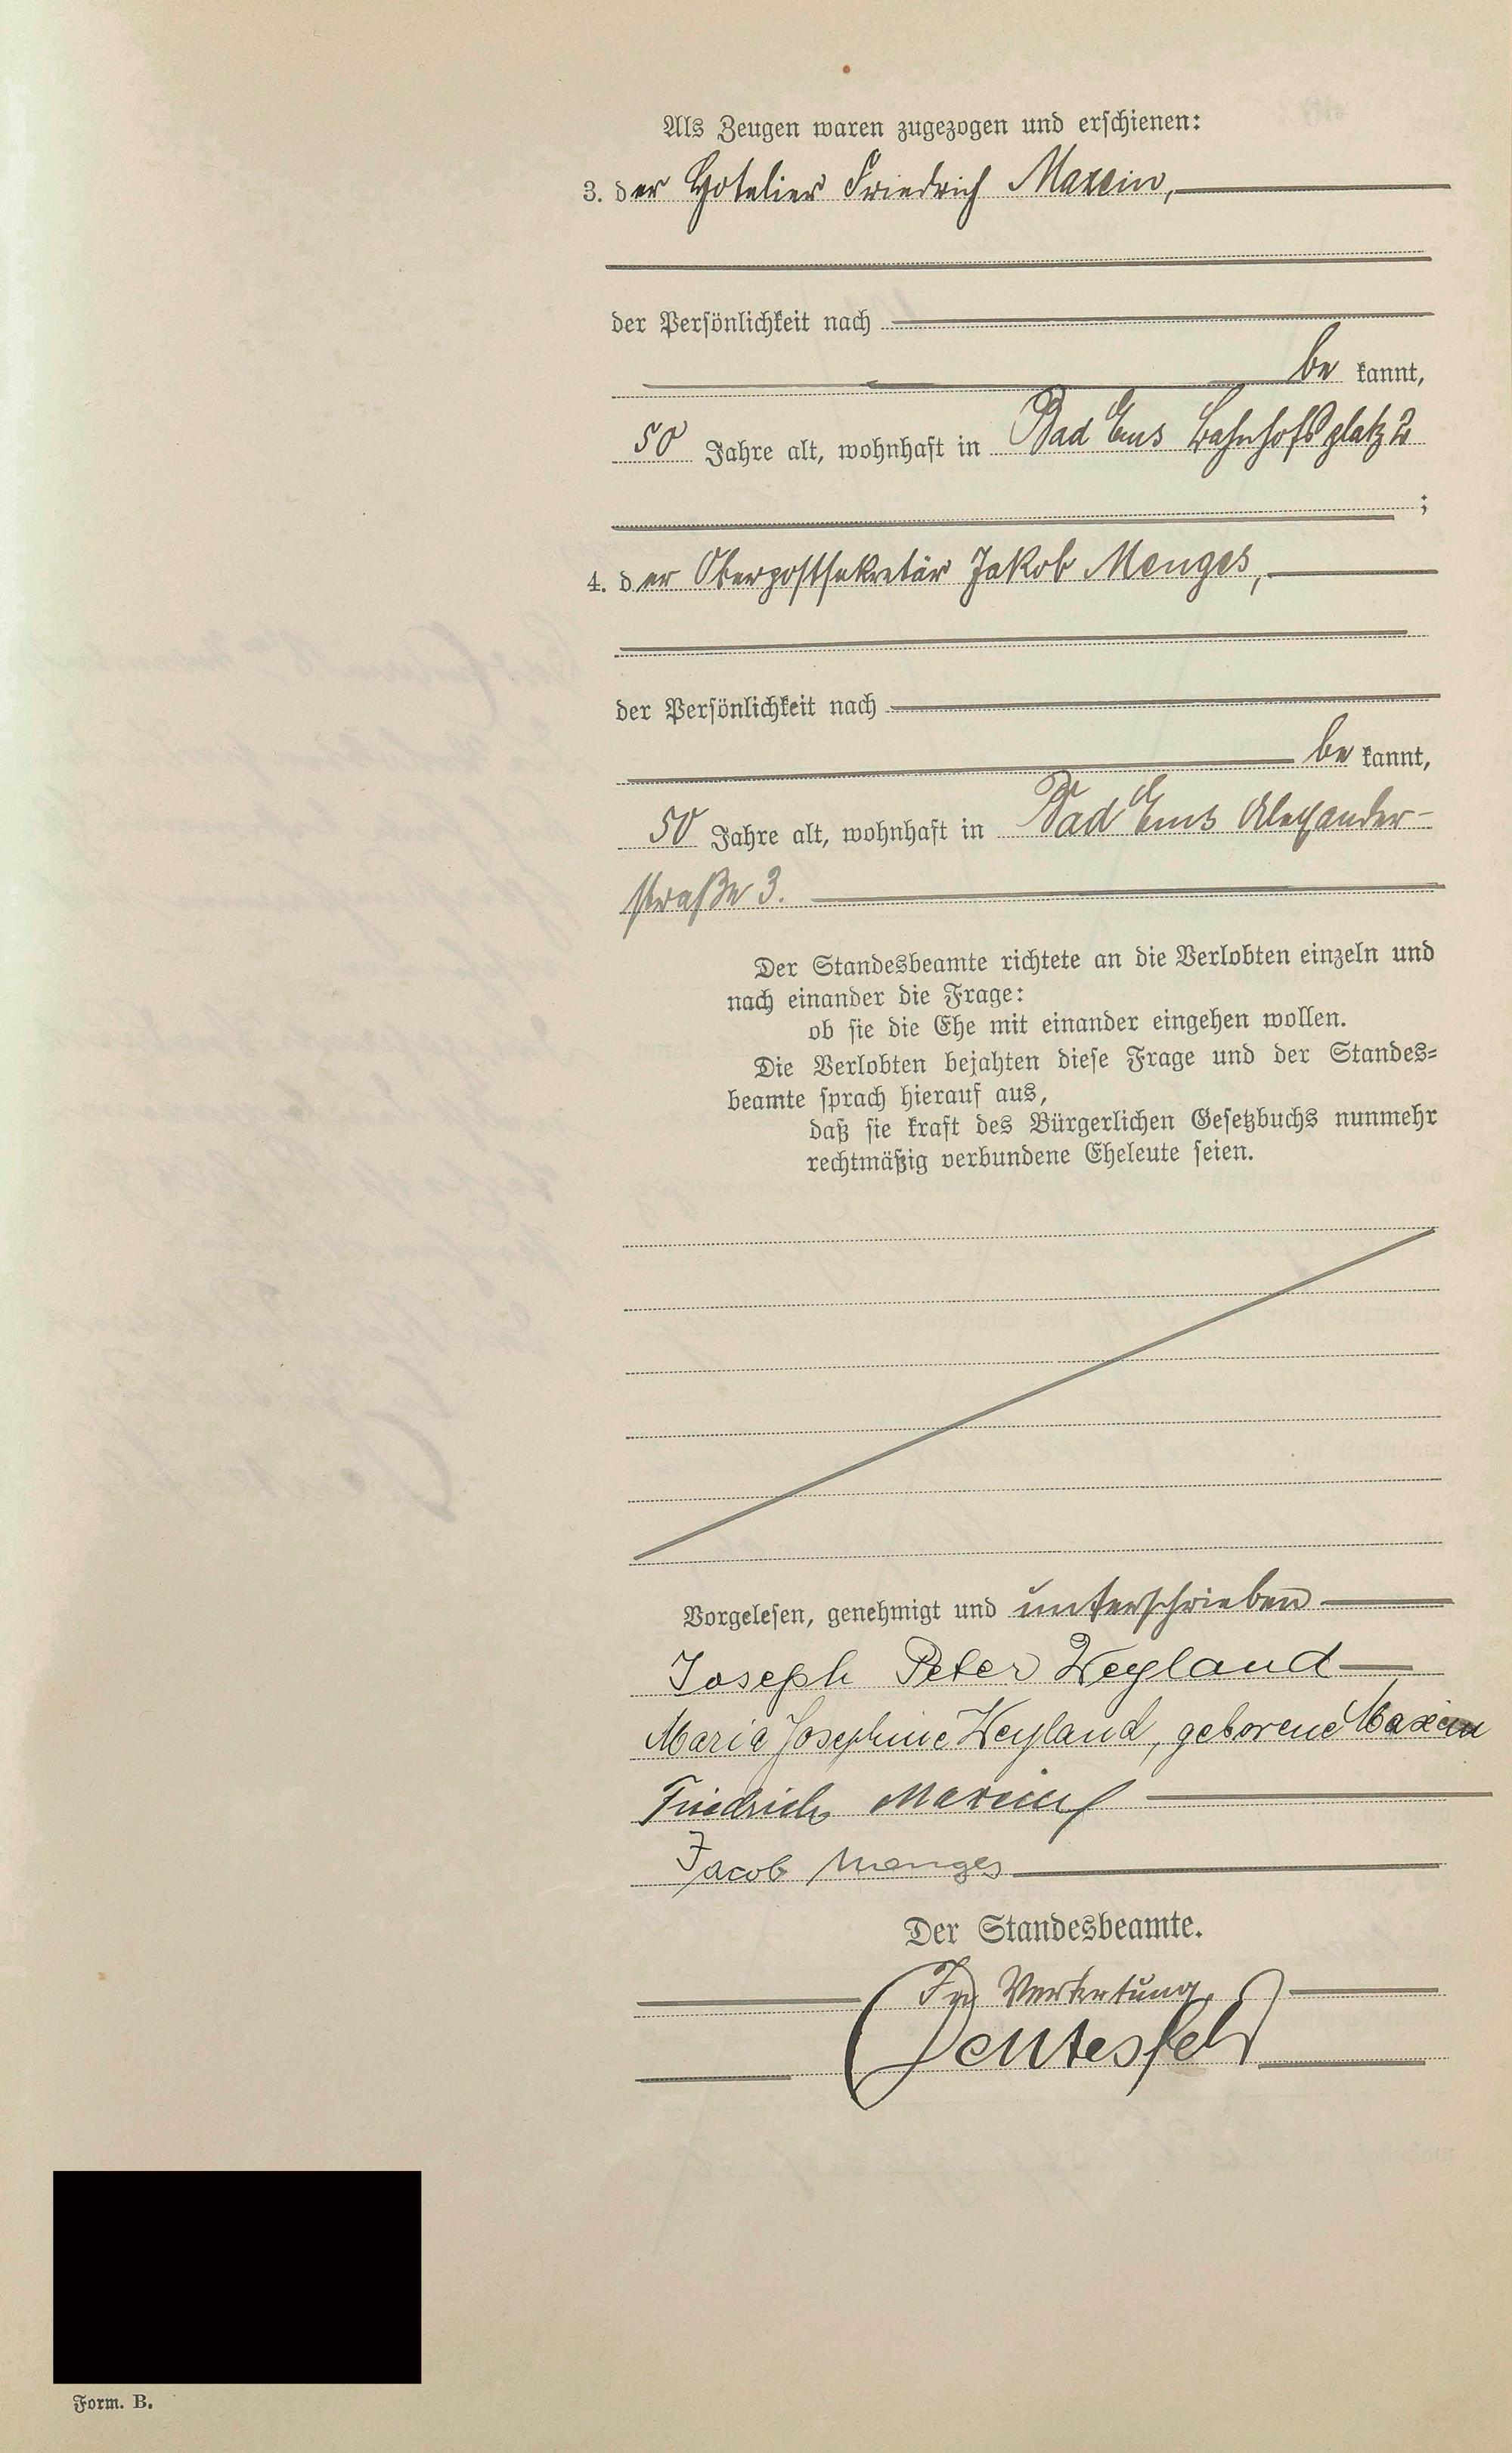 Als Zeugen waren zugezogen und erschienen:
3. der Hotelier Friedrich Maxein,
der Persönlichkeit nach
be kannt,
50 Jahre alt, wohnhaft in Bad Ems Bahnhofsplatz 2
;
4. der Oberpostsekretär Jakob Menges,
der Persönlichkeit nach
be kannt,
50 Jahre alt, wohnhaft in Bad Ems Alexander-
straße 3.
Der Standesbeamte richtete an die Verlobten einzeln und
nach einander die Frage:
ob sie die Ehe mit einander eingehen wollen.
Die Verlobten bejahten diese Frage und der Standes=
beamte sprach hierauf aus,
daß sie kraft des Bürgerlichen Gesetzbuchs nunmehr
rechtmäßig verbundene Eheleute seien.
Vorgelesen, genehmigt und unterschrieben
Joseph Peter Weyland
Maria Josephine Weyland, geborene Maxein
Friedrich Maxein
Jacob Menges
Der Standesbeamte.
In Vertretung
Form. B.